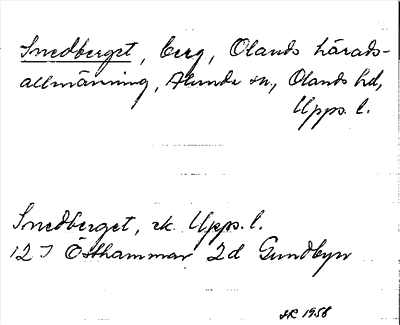 Snedberget, berg, Olands härads-
allmänning, Alunda sn, Olands hd,
Upps. l.
Snedberget, ek. Upps. l.
12I Östhammar 2d Gundbyn
AR 1958